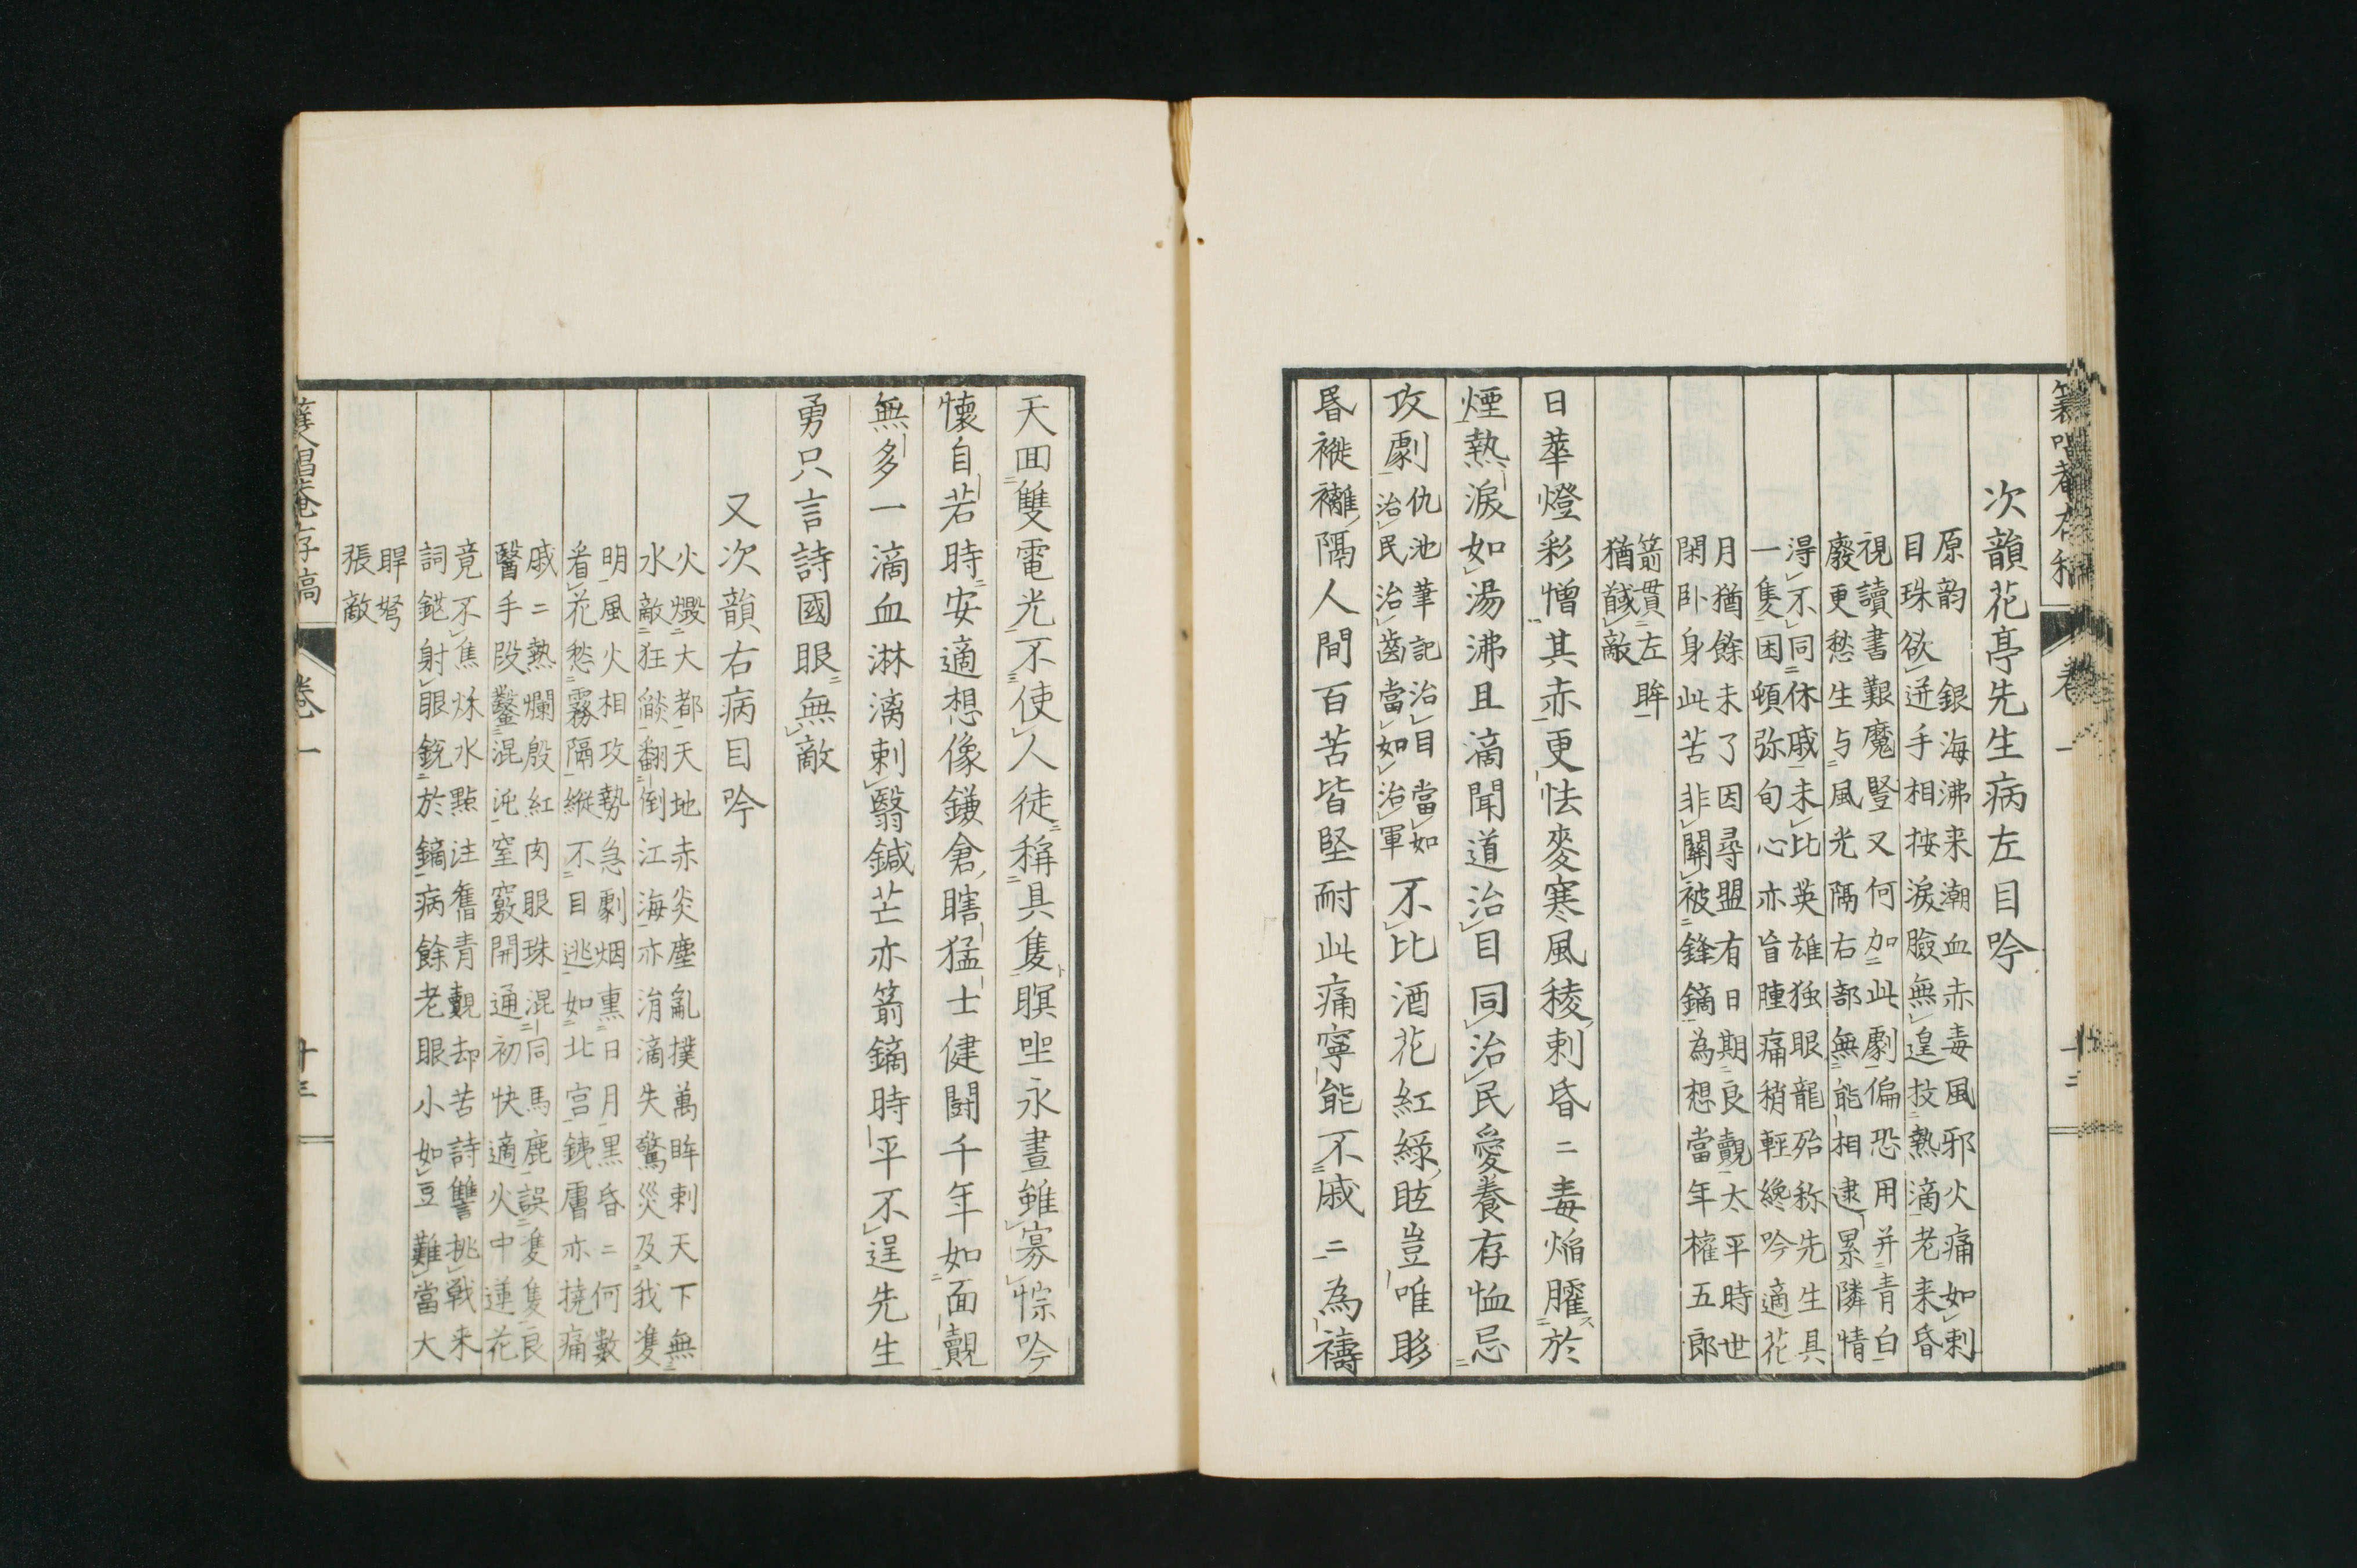 次韻花亭先生病左目吟
原韵　銀海沸来潮血赤毒風邪火痛如刺
目珠欲迸手相按淚臉無遑技熱滴老来昏
視讀書艱魔豎又何加此劇偏恐用并青白
廢更愁生与風光隔右部無能相逮累隣情
淂不同休戚未比英雄独眼龍殆称先生具
一隻困頓弥旬心亦盲腫痛稍輕纔吟適花
月猶餘未了因尋盟有日期良覿太平時世
閑卧身此苦非關被鋒鏑為想當年権五郎
箭貫左眸
猶馘敵
日華燈彩憎其赤更怯麥寒風稜刺昏二毒焔臞於
煙熱淚如湯沸且滴聞道治目同治民愛養存恤忌
攻劇
仇池筆記治目當如
治民治齒當如治軍
不比酒花紅綠眩豈唯眵
昬褷褵隔人間百苦皆堅耐此痛寧能不戚二為禱
天回雙電光不使人徒稱具隻瞑坐永晝雖寡悰吟
懷自若時安適想像鎌倉瞎猛士健闘千年如面覿
無多一滴血淋漓刺翳鍼芒亦箭鏑時平不逞先生
勇只言詩國眼無敵
又次韻右病目吟
火燬大都天地赤炎塵亂撲萬眸刺天下無
水敵狂燄翻倒江海亦涓滴失驚災及我隻
明風火相攻勢不急劇烟熏日月黒昏二何數
看花愁霧隔縱不目逃如北宮銕膚亦撓痛
戚二熱爛殷紅肉眼珠混同馬鹿誤隻隻良
醫手段鑿混沌窒竅開通初快適火中蓮花
竟不焦炑水點注舊青覿却苦詩讐挑戦来
詞鋩射眼銳於鏑病餘老眼小如豆難當大
睅弩
張敵
卷一